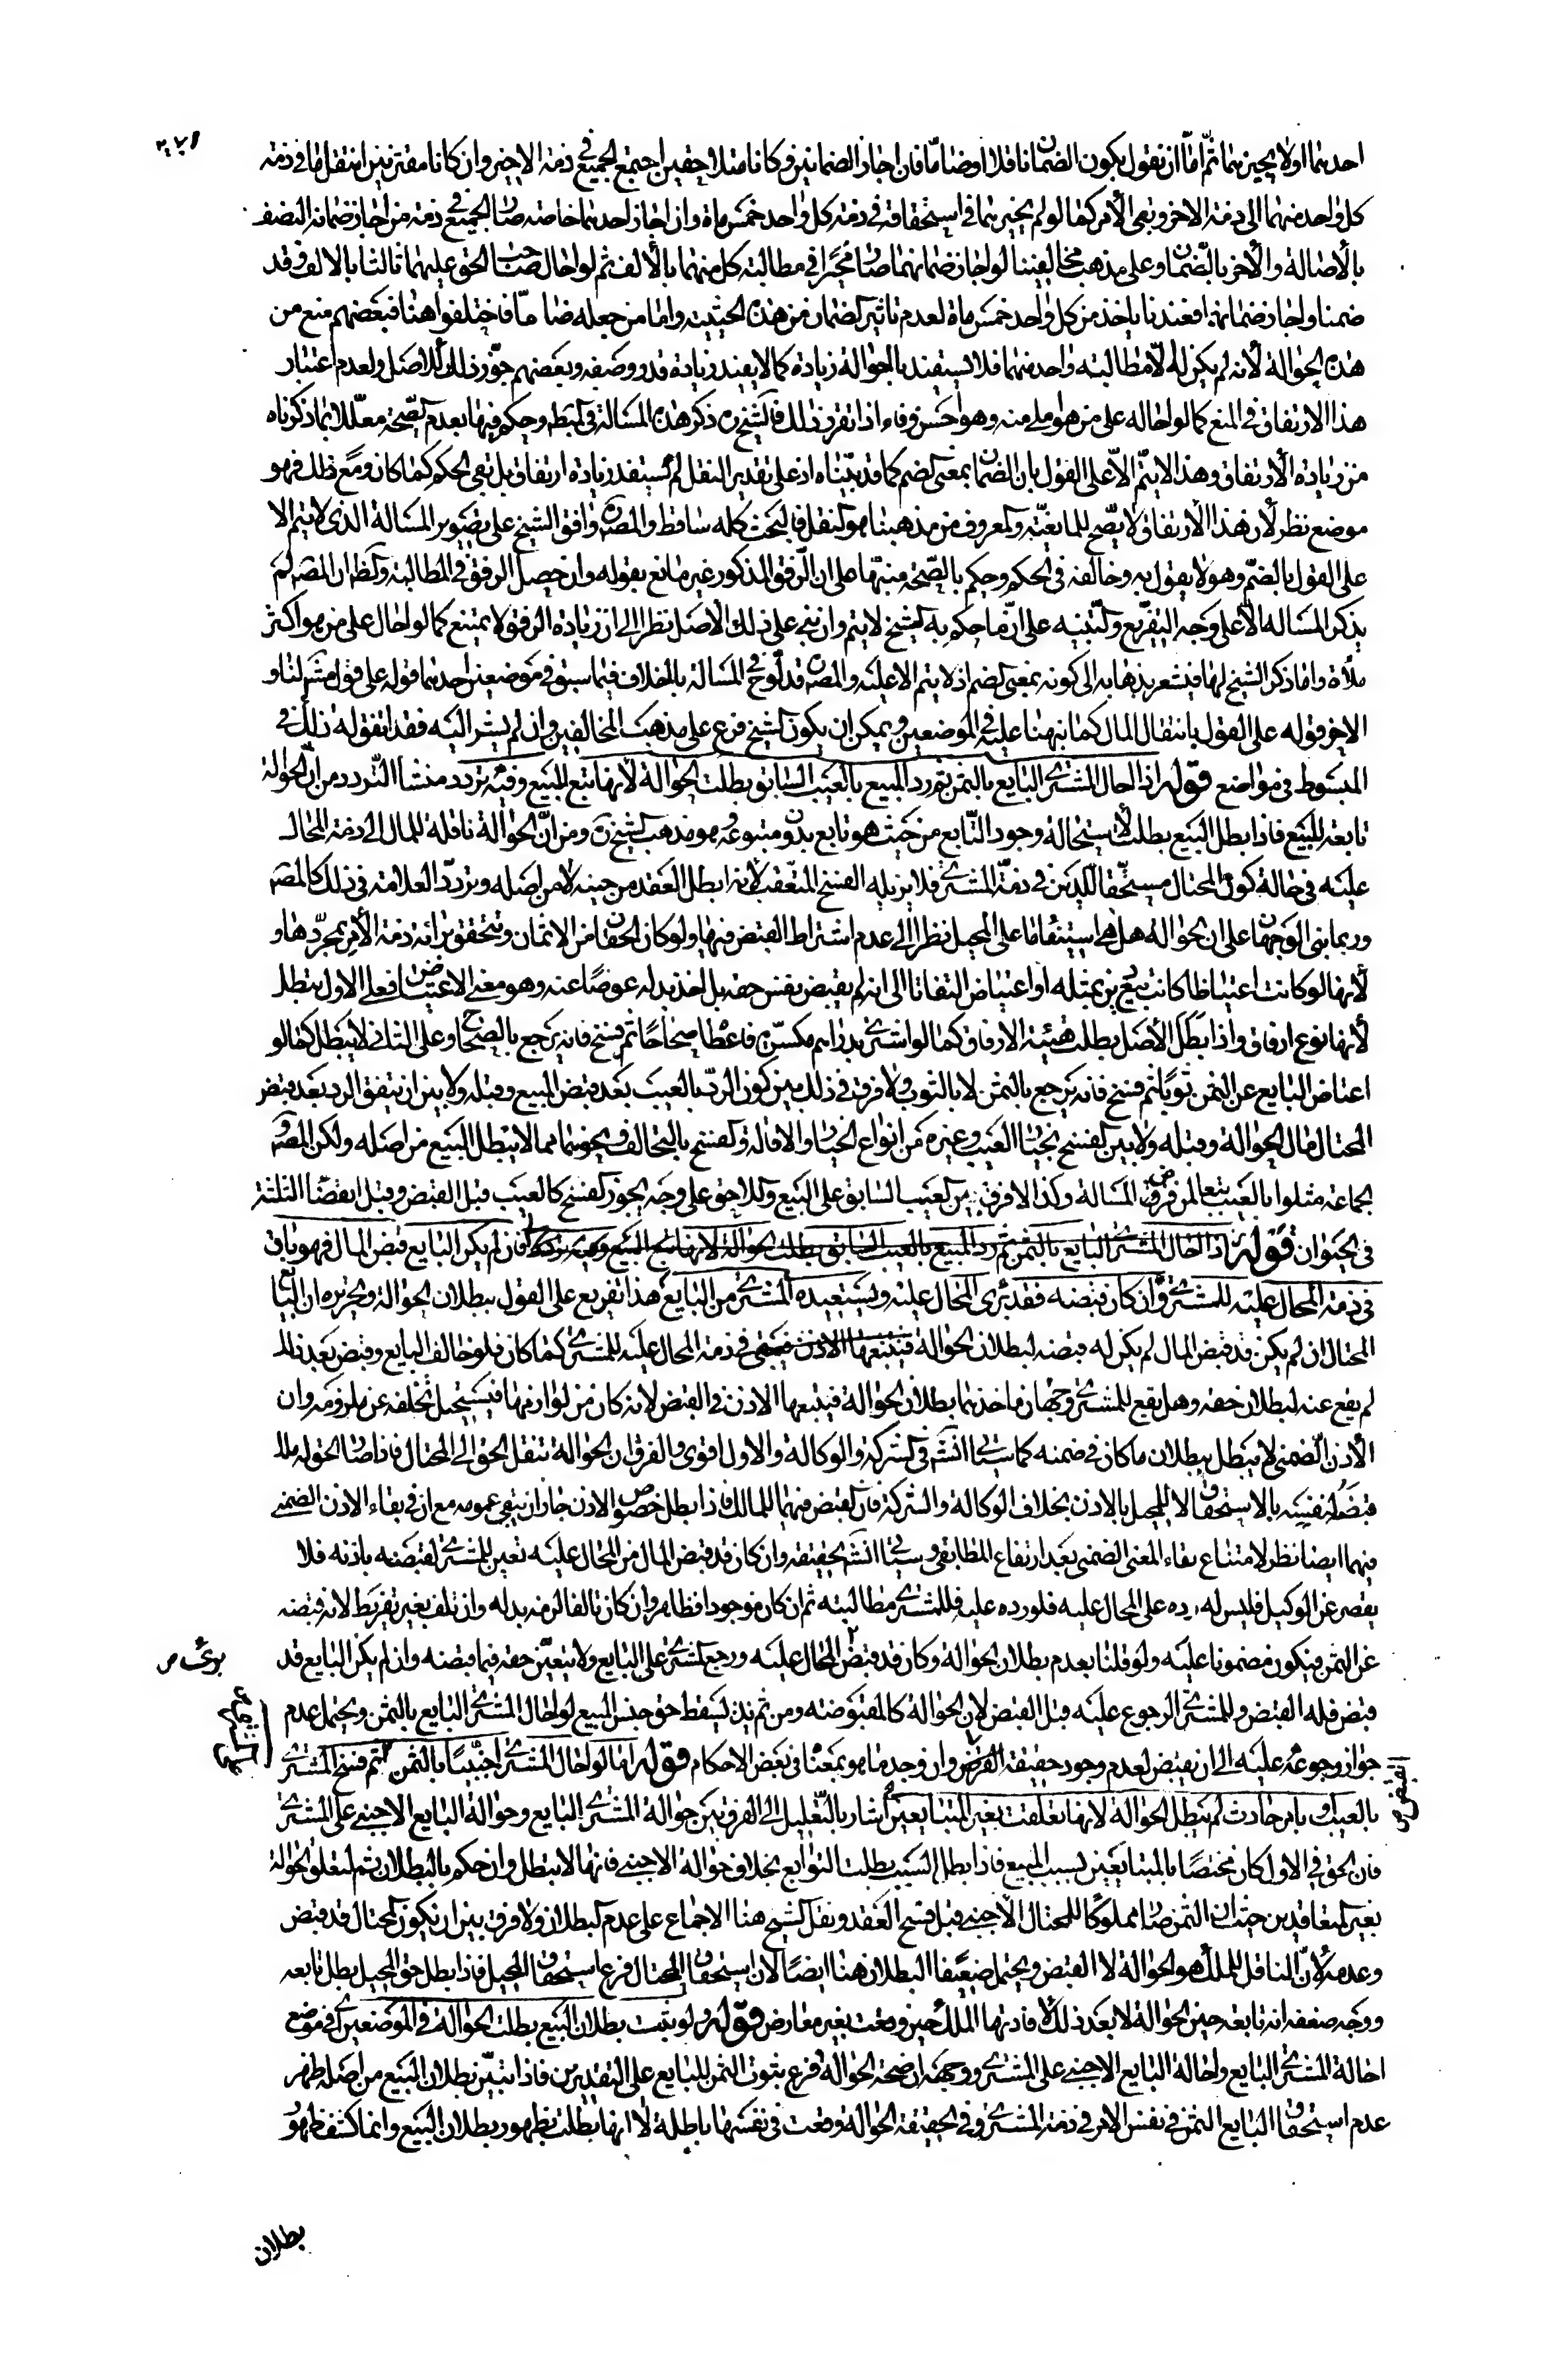 ٢٧١
احدهما اولا يجيزهما ثم اما ان نقول بكون الضمان ناقلا او ضاما فان اجاز الضمانين وكانا متلاحقين اجتمع الجميع في ذمة الاخير وان كانا مقترنين انتقل ما في ذمة
كل واحد منهما الى ذمة الاخر وبقى الأمر كما لو لم يجيزهما في استحقاقه في ذمة كل واحد خمس ماة وان اجاز احدهما خاصة صار الجميع في ذمة من اجاز ضمانه النصف
بالأصالة والأخر بالضمان وعلى مذهب مخالفينا لو اجاز ضمانهما صار مخيرا في مطالبة كل منهما بالألف ثم لو احال صاحب الحق عليهما ثالثا بالالف وقد
ضمنا واجاز ضمانهما فعندنا ياخذ من كل واحد خمس ماة لعدم تاثير الضمان من هذه الحيثية واما من جعله ضاما فاختلفوا هنا فبعضهم منع من
هذه الحوالة لأنه لم يكن له الا مطالبة واحد منهما فلا يستفيد بالحوالة زيادة كما لا يفيد زيادة قدر وصفة وبعضهم جوز ذلك للاصل ولعدم اعتبار
هذا الارتفاق في المنع كما لو احاله على من هو املى منه وهو احسن وفاء اذا تقرر ذلك فالشيخ ره ذكر هذه المسالة في المبسط وحكم فيها بعدم الصحة معللا بما ذكرناه
من زيادة الأرتفاق وهذا لا يتم الا على القول بان الضمان بمعنى الضم كما قد بيناه اذ على تقدير النقل لم يستفد زيادة ارتفاق بل بقى الحكم كما كان ومع ذلك فهو
موضع نظر لأن هذا الأرتفاق لا يصح للمانعية والمعروف من مذهبنا هو النقل فالبحث كله ساقط والمصره وافق الشيخ على تصوير المسالة الذى لا يتم الا
على القول بالضم وهو لا يقول به وخالفه في الحكم وحكم بالصحة منبها على ان الرفق المذكور غير مانع بقوله وان حصل الرفق في المطالبة والظ ان المصره لم
يذكر المساله الا على وجه التفريع والتنبيه على ان ما حكم به الشيخ لا يتم وان بنى على ذلك الأصل نظرا الى ان زيادة الرفق لا يمنع كما لو احال على من هو اكثر
ملاة واما ذكر الشيخ لها فيشعر بذهابه الى كونه بمعنى الضم اذ لا يتم الا عليه والمصره قد لوح في المسالة بالخلاف فيما سبق في موضعين احدهما قوله على قول مشهور لنا و
الاخر قوله على القول بانتقال المال كما نبهنا عليه في الموضعين ويمكن ان يكون الشيخ فرع على مذهب المخالفين وان لم يشر اليه فقد اتفق له ذلك في
المبسوط في مواضع قوله اذا احال المشترى البايع بالثمن ثم رد المبيع بالعيب السابق بطلت الحوالة لأنها تتبع البيع وفيه تردد منشا التردد من ان الحوالة
تابعة للبيع فاذا بطل البيع بطلت لاستحالة وجود التابع من حيث هو تابع بدون متبوعه وهو مذهب الشيخ ره ومن ان الحوالة ناقلة للمال الى ذمة المحال
عليه في حالة كون المحتال مستحقا للدين في ذمة المشترى فلا يزيله الفسخ المتعقب لانه ابطل العقد من حينه لا من اصله وتردد العلامة في ذلك كالمصره
وربما بنى الوجهان على ان الحواله هل هى استيفاء ما على المحيل نظرا الى عدم اشتراط القبض فيها ولو كان الحقان من الاثمان وتتحقق برائة ذمة الأمر بمجردها و
لأنها لو كانت اعتياضا كانت بيع دين بمثله او اعتياض التفاتا الى انه لم يقبض نفس حقه بل اخذ بدله عوضا عنه وهو معنى الاعتياض فعلى الاول تبطل
لأنها نوع ارفاق واذا بطل الأصل بطلت هيئة الارفاق كما لو اشترى بدراهم مكسرة فاعطاه صحاحا ثم فسخ فانه يرجع بالصحاح وعلى الثانى لا تبطل كما لو
اعتاض البايع عن الثمن ثوبا ثم فسخ فانه يرجع بالثمن لا بالثوب ولا فرق في ذلك بين كون الرد بالعيب بعد قبض المبيع وقبله ولا بين ان يتفق الرد بعد قبض
المحتال مال الحوالة وقبله ولا بين الفسخ بخيار العيب وغيره من انواع الخيار والاقالة والفسخ بالتحالف ونحوهما مما لا يبطل البيع من اصله ولكن المصره و
جماعة مثلوا بالعيب تبعا لمن فرض المسالة وكذا لا فرق بين العيب السابق على البيع واللاحق على وجه يجوز الفسخ كالعيب قبل القبض وقبل انقضاء الثلثة
في الحيوان قوله اذا احال المشترى البايع بالثمن ثم رد المبيع بالعيب السابق بطلت الحوالة لأنها تتبع البيع وفيه تردد فان لم يكن البايع قبض المال فهو باق
في ذمة المحال عليه للمشترى وان كان قبضه فقد برى المحال عليه ويستعيده المشترى من البايع هذا تفريع على القول ببطلان الحوالة وتحريره ان البايع
المحتال ان لم يكن قد قبض المال لم يكن له قبضه لبطلان الحوالة فيتبعها الاذن فيبقى في ذمة المحال عليه للمشترى كما كان فلو خالف البايع وقبض بعد ذلك
لم يقع عنه لبطلان حقه وهل يقع للمشترى وجهان ماخذهما بطلان الحوالة فيتبعها الاذن في القبض لانه كان من لوازمها فيستحيل تخلفه عن ملزومه وان
الأذن الضمنى لا يبطل ببطلان ما كان في ضمنه كما سياتى انشم في الشركة والوكالة والاول اقوى والفرق ان الحوالة تنقل الحق الى المحتال فاذا صار الحق له ملك
قبضه لنفسه بالاستحقاق لا للمحيل بالاذن بخلاف الوكالة والشركة فان القبض فيهما للمالك فاذا بطل خصوص الاذن جاز ان يبقى عمومه مع ان في بقاء الاذن الضمنى
فيهما ايضا نظر لامتناع بقاء المعنى الضمنى بعد ارتفاع المطابقى وسياتى انشم تحقيقه وان كان قد قبض المال من المحال عليه تعين للمشترى لقبضه باذنه فلا
يقصر عن الوكيل فليس له رده على المحال عليه فلو رده عليه فللمشترى مطالبته ثم ان كان موجودا فظاهر وان كان تالفا لزمه بدله وان تلف بغير تفريط لانه قبضه
عن الثمن فيكون مضمونا عليه ولو قلنا بعدم بطلان الحوالة وكان قد قبض المحال عليه ورجع المشترى على البايع ولا يتعين حقه فيما قبضه وان لم يكن البايع قد
برئ ص
قبض فله القبض وللمشترى الرجوع عليه قبل القبض لان الحوالة كالمقبوضة ومن ثم يسقط حق حبس المبيع لو احال المشترى البايع بالثمن ويحتمل عدم
جواز رجوعه عليه الى ان يقبض لعدم وجود حقيقة القبض وان وجد ما هو بمعناه في بعض الاحكام قوله اما لو احال المشترى اجنبيا بالثمن ثم فسخ المشترى
القبض ص
بالعيب او بامر حادث لم تبطل الحوالة لانها تعلقت بغير المتبايعين اشار بالتعليل الى الفرق بين حوالة المشترى البايع وحوالة البايع الاجنبى على المشترى
فان الحق في الاول كان مختصا بالمتبايعين لسبب البيع فاذا بطل السبب بطلت التوابع بخلاف حوالة الاجنبى فانها لا تبطل وان حكم بالبطلان ثم لتعلق الحوالة
بغير المتعاقدين حيث ان الثمن صار مملوكا للمحتال الأجنبى قبل فسخ العقد ونقل الشيخ هنا الاجماع على عدم البطلان ولا فرق بين ان يكون المحتال قد قبض
وعدمه لأن الناقل للملك هو الحوالة لا القبض ويحتمل ضعيفا البطلان هنا ايضا لأن استحقاق المحتال فرع استحقاق المحيل فاذا بطل حق المحيل بطل تابعه
ووجه ضعفه انه تابعه حين الحوالة لا بعد ذلك لافادتها الملك حين وقعت بغير معارض قوله ولو ثبت بطلان البيع بطلت الحوالة في الموضعين اى في موضع
احالة المشترى البايع واحالة البايع الاجنبى على المشترى ووجهه ان صحة الحوالة فرع ثبوت الثمن للبايع على التقديرين فاذا تبين بطلان البيع من اصله ظهر
عدم استحقاق البايع الثمن في نفس الامر في ذمة المشترى وفي الحقيقة الحوالة وقعت في نفسها باطلة لا انها بطلت بظهور بطلان البيع وانما كشف ظهور
بطلان